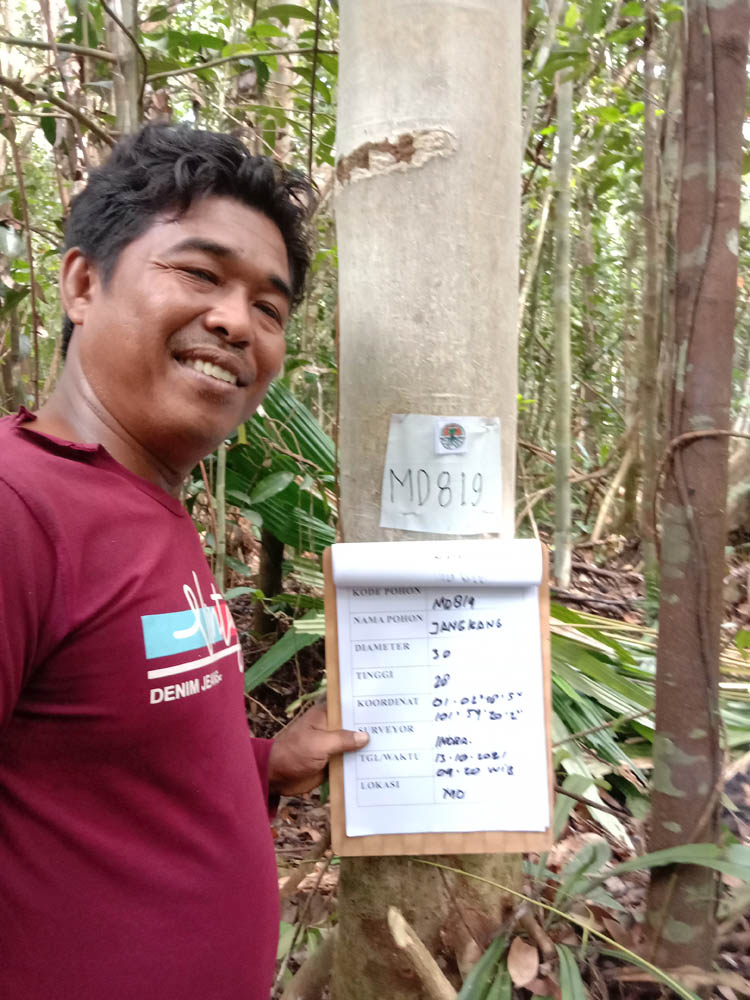 MD819
KODE POHON MD819
NAMA POHON JANGKANG
DIAMETER 30
TINGGI 28
KOORDINAT 01.02'18'5"
101'59'20'2"
SURVEYOR INDRA.
TGL/WAKTU 13.10.2021
09.20 WIB
LOKASI MD
DENIM JEANS